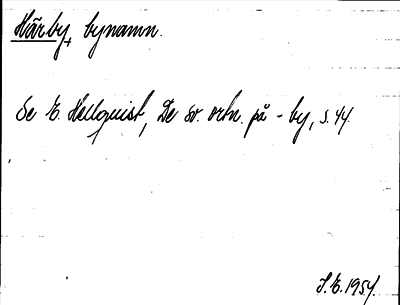 Härby, bynamn.
Se E. Hellquist, De sv. ortn. på -by, s. 44.
S.E. 1954.